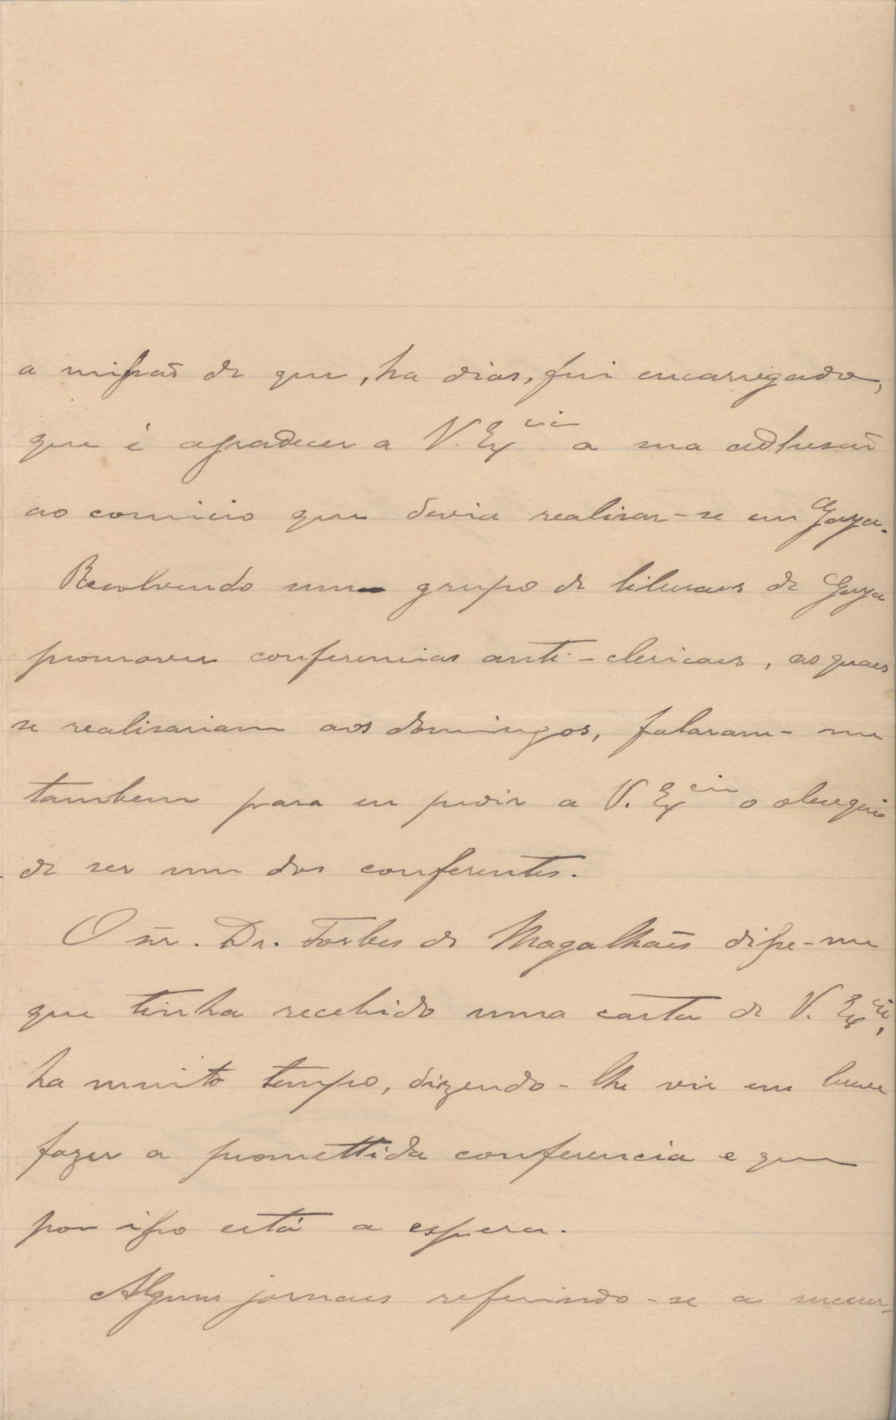 a missão de que, ha dias, fui encarregado,
que é agradecer a V. Ex.cia a sua adhesão
ao comicio que devia realisar-se em Gaya.
Resolvendo um grupo de liberaes de Gaya
promover conferencias anti-clericaes, as quaes
se realisariam aos domingos, falaram-me
tambem para eu pedir a V. Ex.cia o obsequio
de ser um dos conferentes.
O snr. Dr. Forbes de Magalhães disse-me
que tinha recebido uma carta de V. Ex.cia,
ha muito tempo, dizendo-lhe vir em breve
fazer a promettida conferencia e que
por isso está a espera.
Alguns jornaes referindo-se a